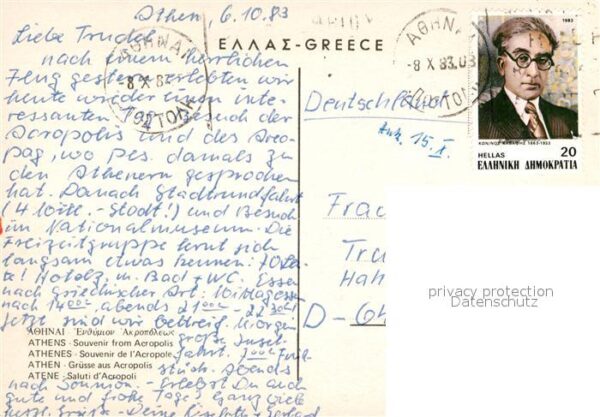 Athen, 6.10.83
Liebe Trudel,
nach einem herrlichen
Flug gestern erlebten wir
heute wieder einen inter-
essanten Besuch der
Acropolis und des Areo-
pag, wo Ps. damals zu
den Athenern gesprochen
hat. Danach Stadtrundfahrt
(4 Mill.-Stadt!) und Besuch
im Nationalmuseum. Die
Freizeitgruppe lernt sich
langsam etwas kennen: 70 Leu-
te! Hotelz. m. Bad + WC. Essen
nach griechischer Art. Mittagessen
nach 14 00, abends 21 00 - 22 30!
Jetzt sind wir Morgen
große Insel-
fahrt. 7 00 Früh-
stück. Abends
nach Sounion. - Erlebst Du auch
gute und frohe Tage? Ganz viele
Grüße - Deine
ΕΛΛΑΣ-GREECE
ΑΘΗΝΑΙ
8 X 83
ΑΘΗΝΑΙ
-8 X 83.03
1983
ΚΩΝ/ΝΟΣ ΚΑΒΑΦΗΣ 1863-1933
HELLAS 20
ΕΛΛΗΝΙΚΗ ΔΗΜΟΚΡΑΤΙΑ
Deutschland
Ank. 15. X.
Frau
Tru
Hah
D-64
privacy protection
Datenschutz
ΑΘΗΝΑΙ - Ἐνθύμιον Ἀκροπόλεως
ATHENS - Souvenir from Acropolis
ATHENES - Souvenir de l'Acropole
ATHEN - Grüsse aus Acropolis
ATENE - Saluti d'Acropoli